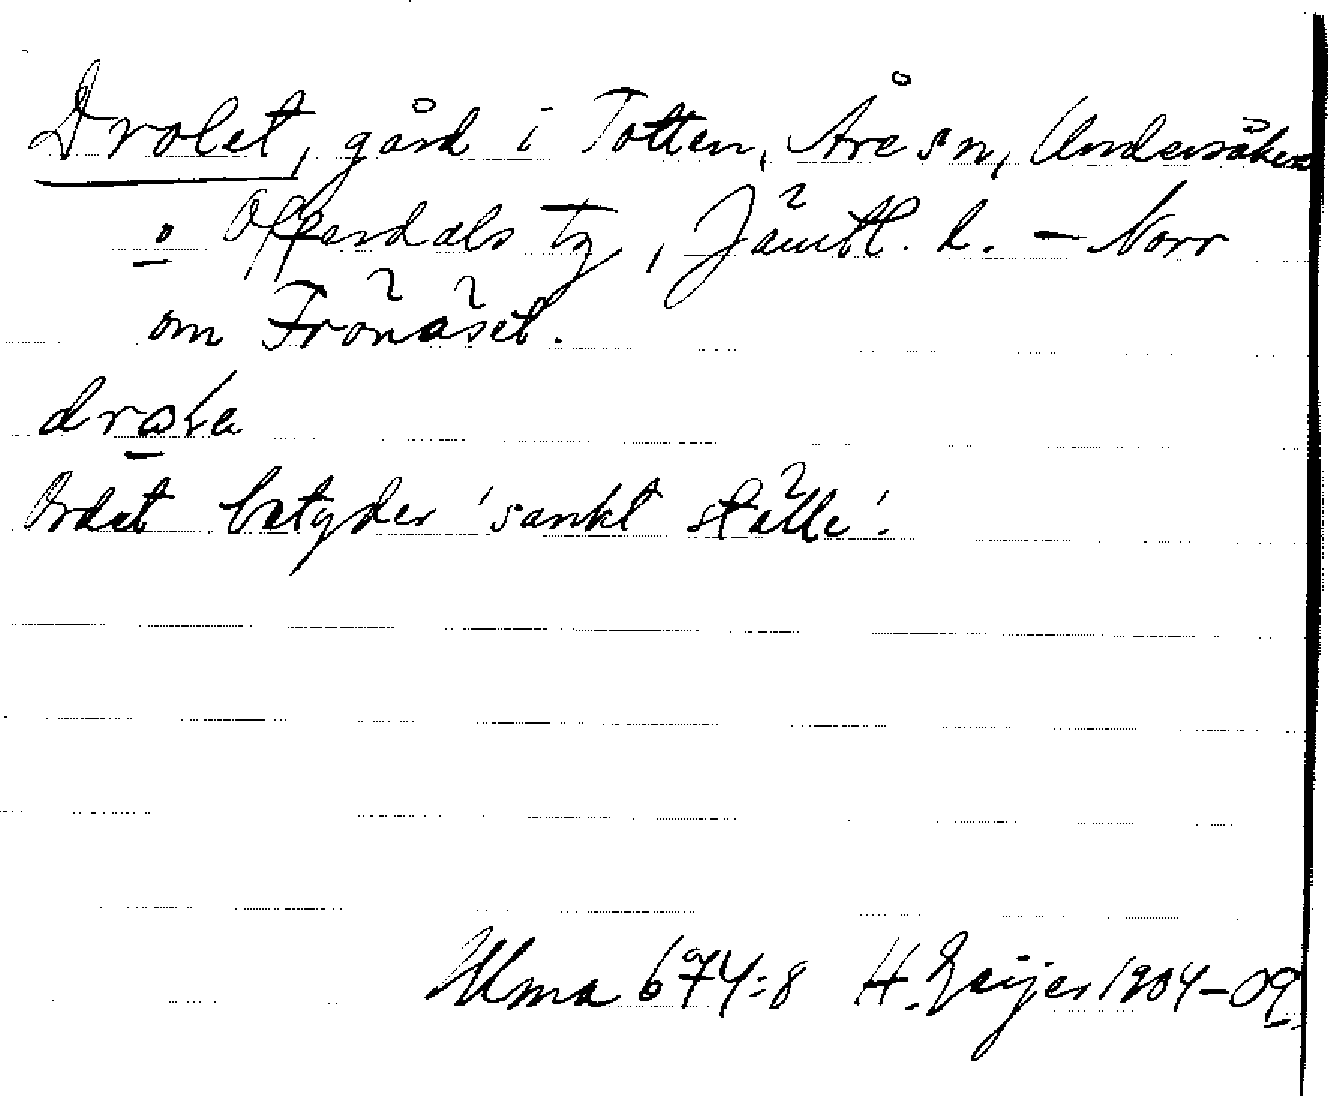 Drolet, gård i Totten, Åre sn, Undersåkers
o Offerdals tg, Jämtl. l. – Norr
om Frönäset.
Ordet betyder 'sankt ställe'.
Ulma 674:8 H. Geijer 1904–09